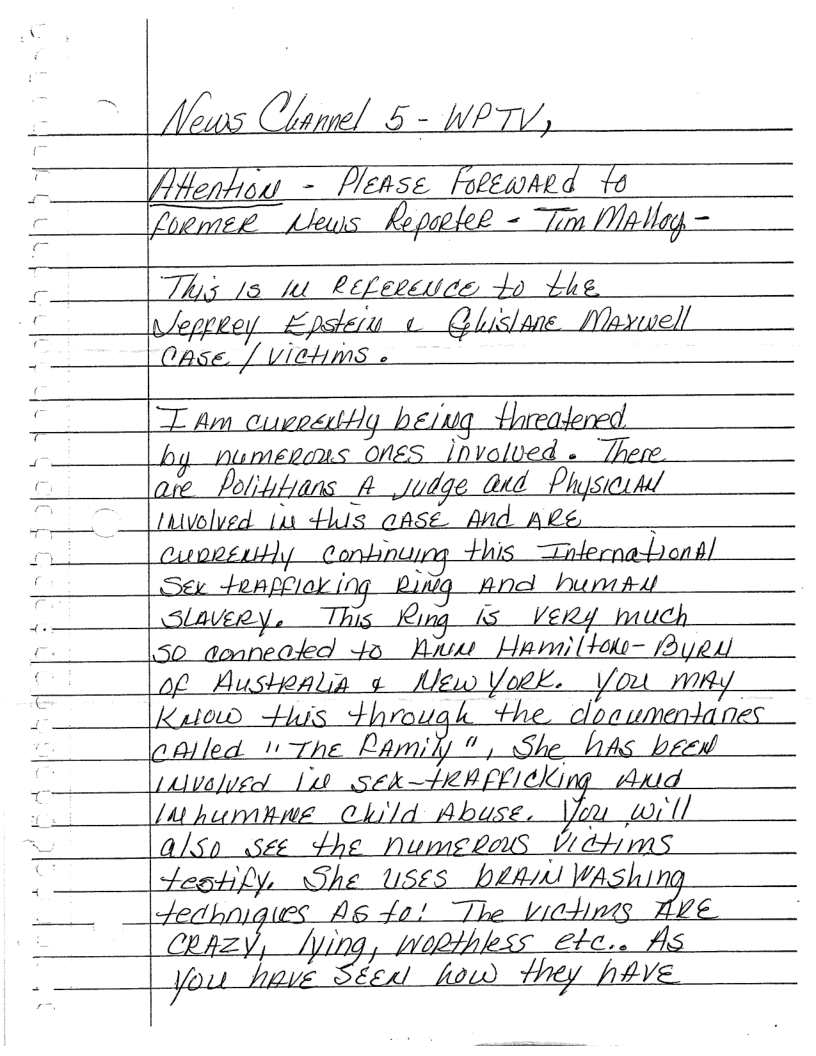 News Channel 5 - WPTV,
Attention - PLEASE FOREWARd to
FORMER News Reporter - Tim MAlloy -
This is in REFERENCE to the
Jeffrey Epstein & Ghislane Maxwell
CASE / Victims.
I Am currently being threatened
by numerous ones involved. There
are Polititians A Judge and Physician
involved in this case And ARE
currently continuing this International
Sex trafficking Ring And human
SLAVERY. This Ring is VERY much
so connected to Anne Hamilton-Byrn
of Australia & New York. You may
Know this through the documentaries
called "The Family", She has been
involved in sex-trafficking And
inhumane child Abuse. You will
also see the numerous victims
testify. She uses brain Washing
techniques As to! The victims ARE
CRAZY, lying, worthless etc.. As
you have seen how they have